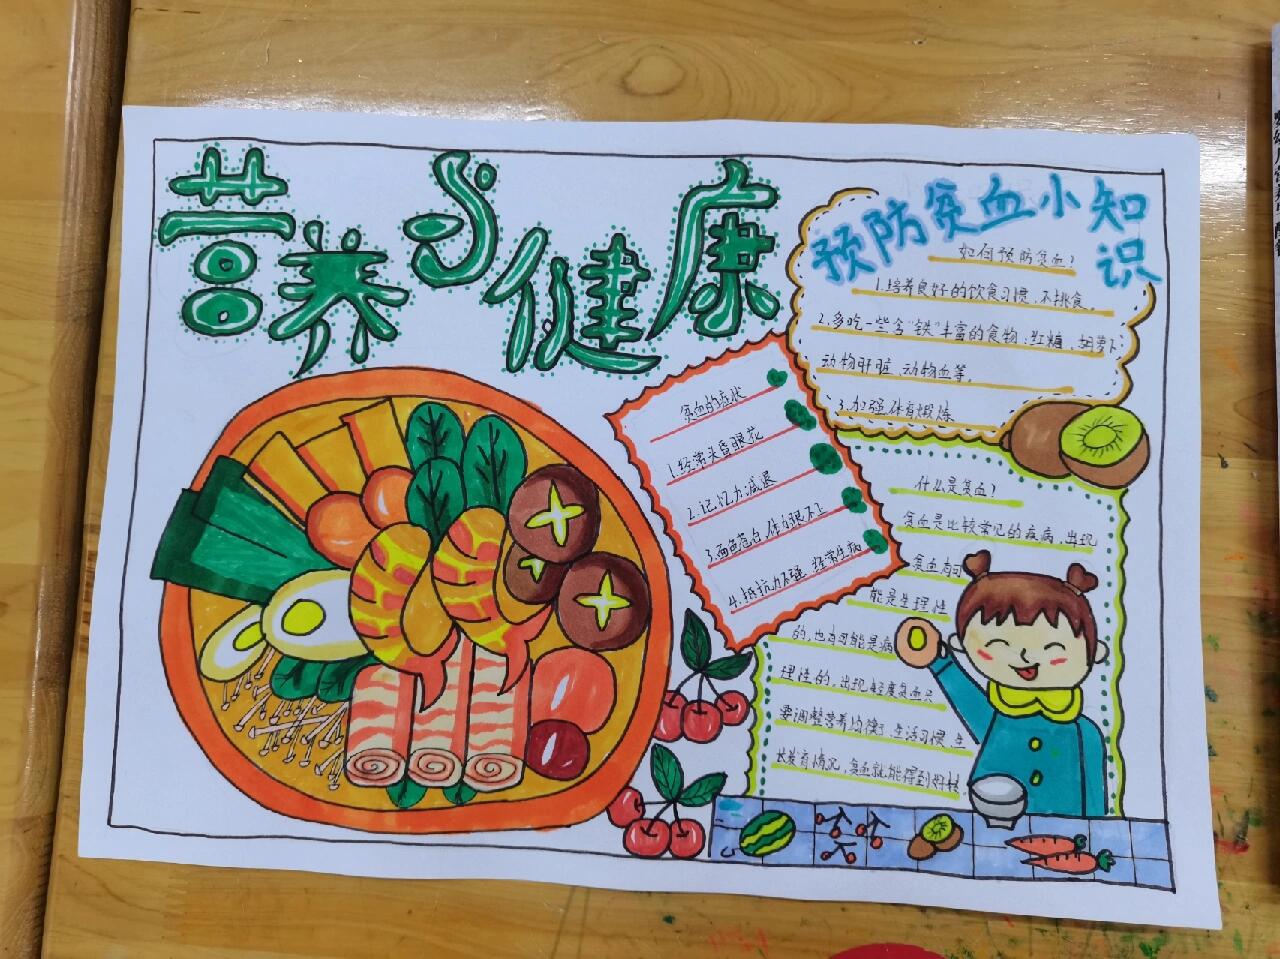 营养与健康
预防贫血小知识
如何预防贫血？
1.培养良好的饮食习惯，不挑食。
2.多吃一些含“铁”丰富的食物：红糖、胡萝卜
动物肝脏、动物血等。
3.加强体育煅炼
贫血的症状
1.经常头昏眼花
2.记忆力减退
3.面色苍白，体力跟不上
4.抵抗力不强，经常生病
什么是贫血？
贫血是比较常见的疾病，出现
贫血有可
能是生理性
的，也有可能是病
理性的，出现轻度贫血只
要调整营养均衡，生活习惯，生
长发育情况，贫血就能得到好转。